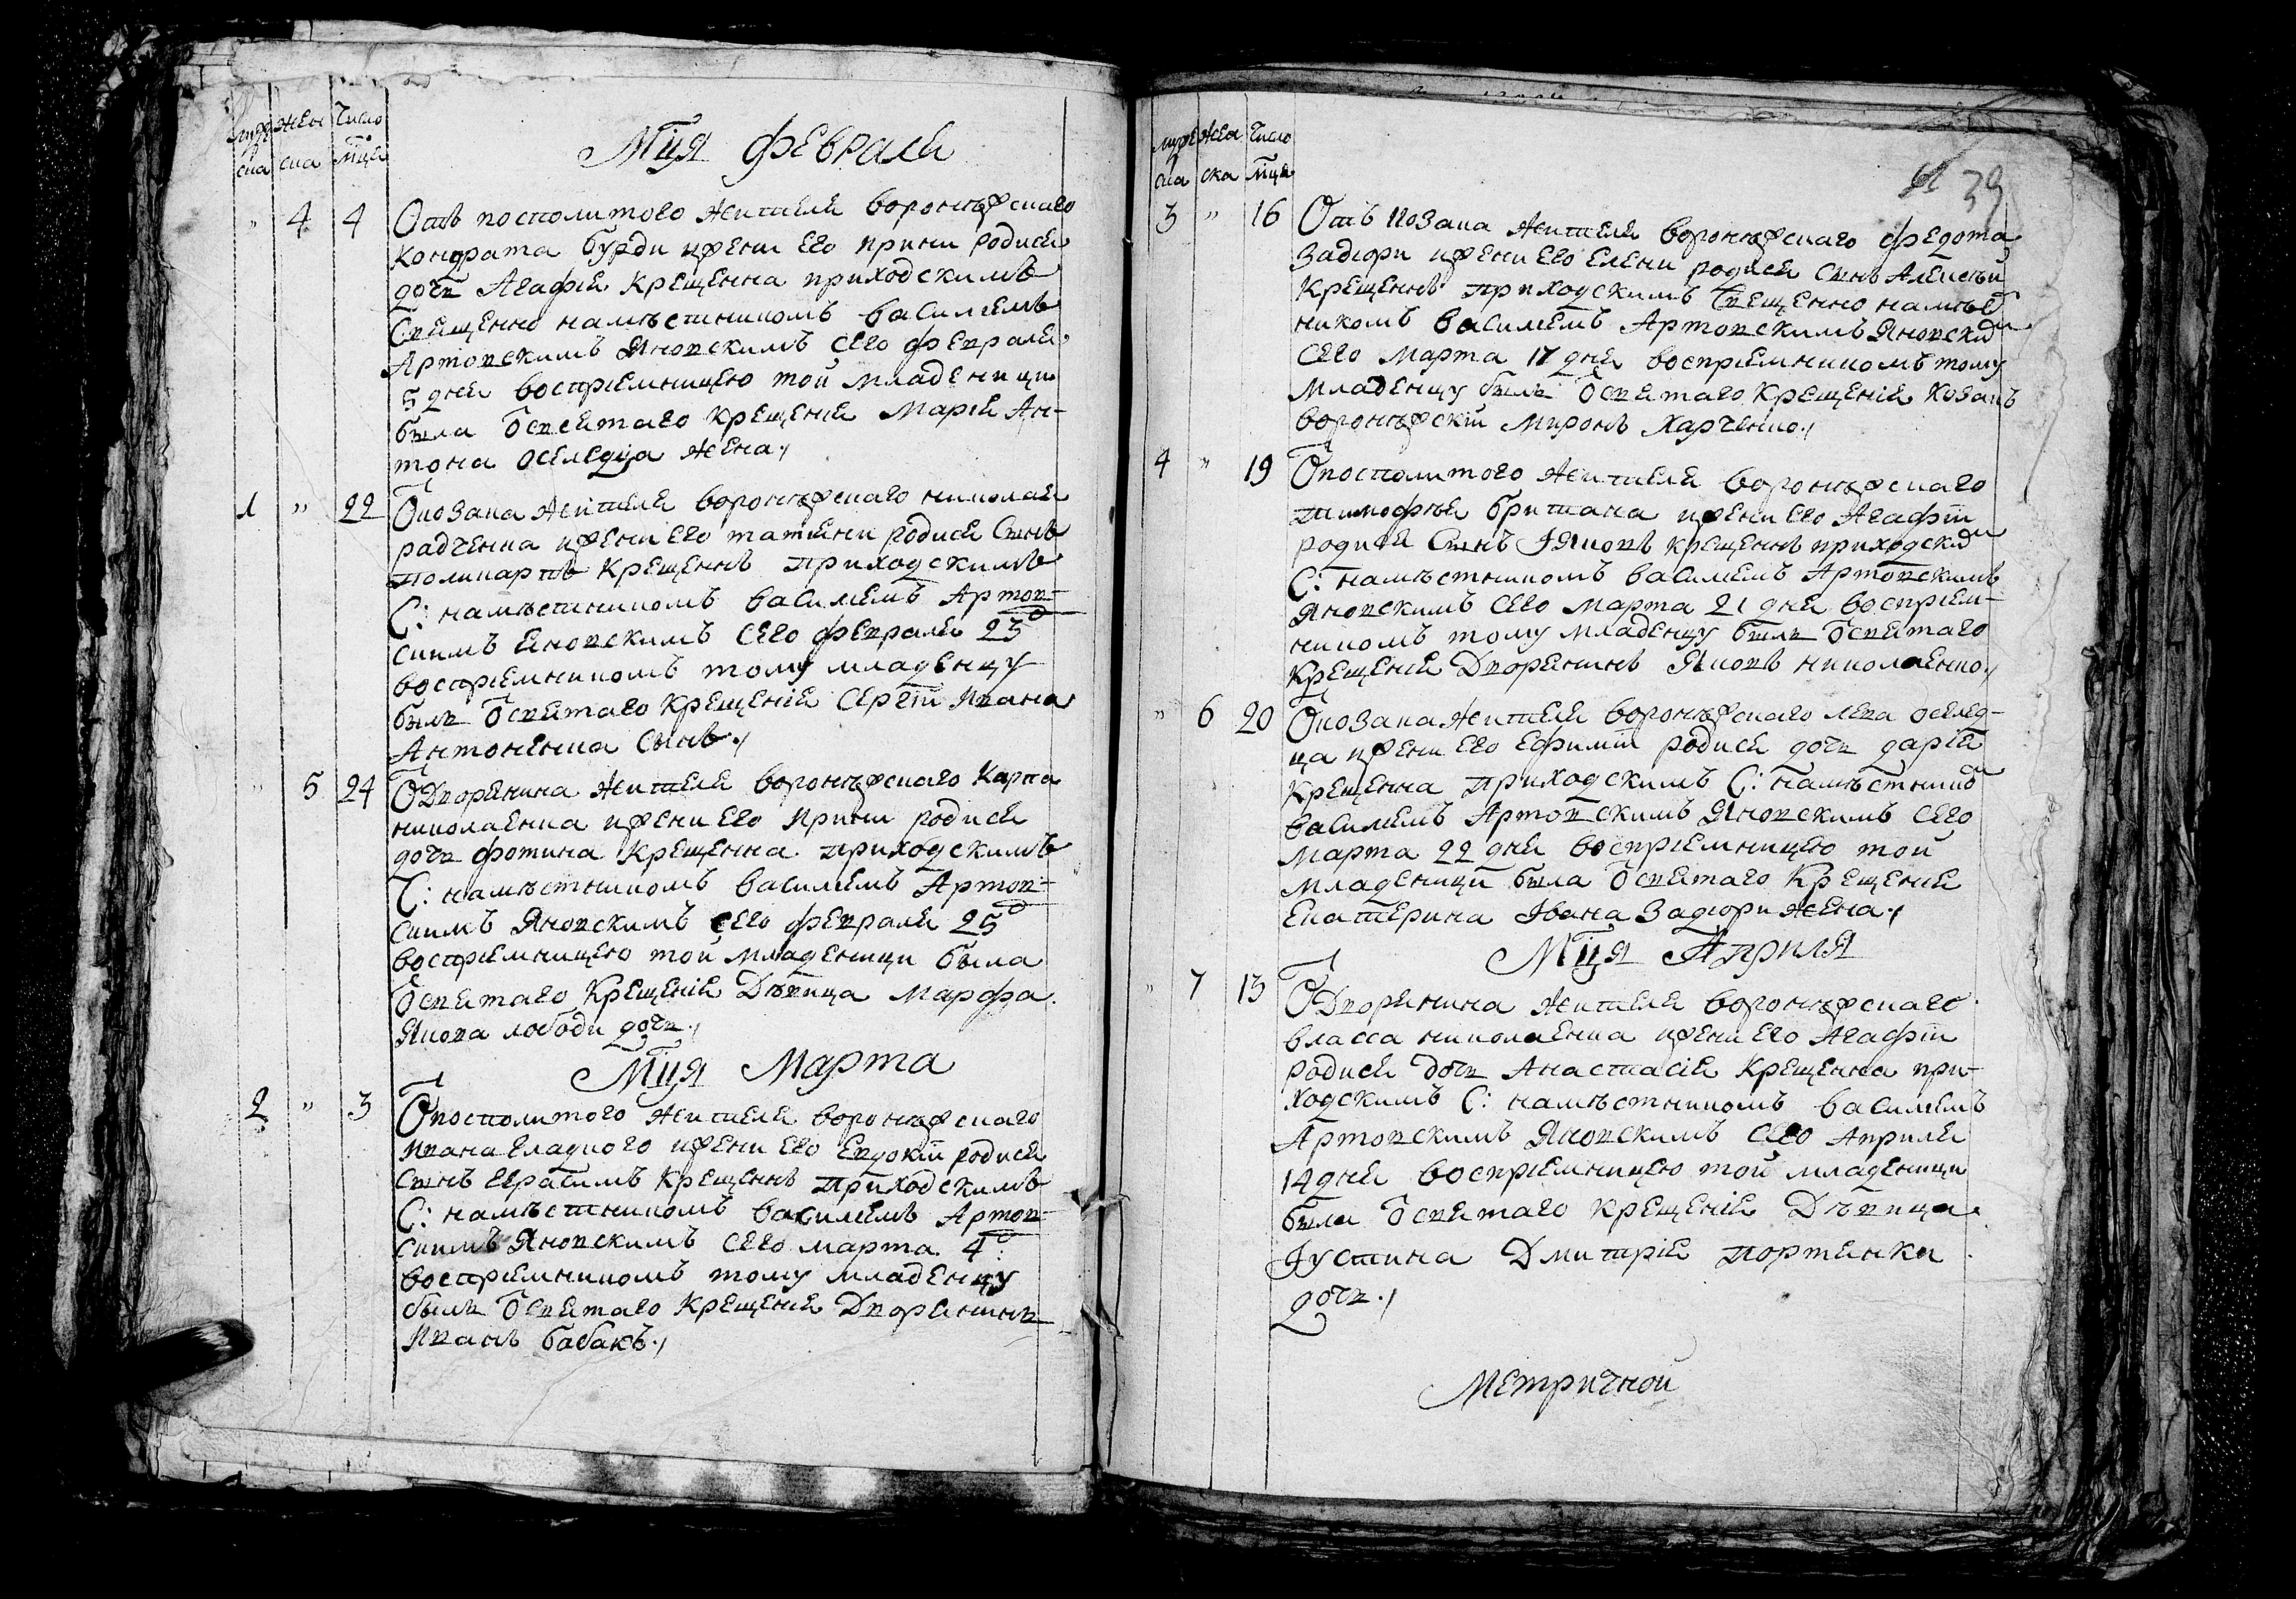 муже жен число
ска ска мця
Мця февраля
" 4 4 Отъ посполитого жителя воронѣжскаго
Кондрата Бурди и жени его Ирини родися
дочь Агафія крещенна приходскимъ
Священно намѣстникомъ Василіемъ
Артовскимъ Яновскимъ сего февраля
5 дня воспріемницею той младеници
была ѿ святаго крещенія Марія Ан-
тона Оселедца жена ./
1 " 22 Ѿ козака жителя воронѣжскаго Николая
Радченка и жени его Татіяни родися Сынъ
Поликарпъ крещеннъ приходскимъ
С: намѣстникомъ Василіемъ Артов-
скимъ Яновскимъ сего февраля 23 д
воспріемникомъ тому младенцу
былъ ѿ святаго крещенія Сергій Ивана
Антоненка Сынъ ./
" 5 24 Ѿ Дворянина жителя воронѣжскаго Карпа
Николаенка и жени его Ирини родися
дочь Фотина крещенна приходскимъ
С: намѣстникомъ Василіемъ Артов-
скимъ Яновскимъ сего февраля 25 д
воспріемницею той младеници была
ѿ святаго крещенія Дѣвица Марфа
Якова Лободи дочь ./
Мця Марта
2 " 3 Ѿ посполитого жителя воронѣжскаго
Ивана Гладкого и жени его Евдокіи родися
Сынъ Герасимъ крещеннъ приходскимъ
С: намѣстникомъ Василіемъ Артов-
скимъ Яновскимъ сего марта 4 д:
воспріемникомъ тому младенцу
былъ ѿ святаго крещенія Дворянинъ
Иванъ Бабакъ ./
муже жен число
ска ска мця
39
3 " 16 Отъ козака жителя воронѣжскаго Федота
Задюри и жени его Елени родися Сынъ Алексѣй
крещеннъ приходскимъ Священно намѣст
никомъ Василіемъ Артовскимъ Яновским
сего марта 17 дня воспріемникомъ тому
младенцу былъ ѿ святаго крещенія козакъ
воронѣжскій Миронъ Харченко ./
4 " 19 Ѿ посполитого жителя воронѣжскаго
Тимофѣя Британа и жени его Агафіи
родися Сынъ Іяковъ крещеннъ приходским
С: намѣстникомъ Василіемъ Артовскимъ
Яновскимъ сего марта 21 дня воспріем-
никомъ тому младенцу былъ ѿ святаго
крещенія Дворянинъ Яковъ Николаенко ./
" 6 20 Ѿ козака жителя воронѣжскаго Лева Оселед-
ца и жени его Ефиміи родися дочь Дарія
крещенна приходскимъ С: намѣстником
Василіемъ Артовскимъ Яновскимъ сего
марта 22 дня воспріемницею той
младеници была ѿ святаго крещенія
Екатерина Івана Задюри жена ./
Мця Априля
" 7 13 Ѿ Дворянина жителя воронѣжскаго
Власса Николаенка и жени его Агафіи
родися дочь Анастасія крещенна при-
ходскимъ С: намѣстникомъ Василіемъ
Артовскимъ Яновскимъ сего Априля
14 дня воспріемницею той младеници
была ѿ святаго крещенія Дѣвица
Іустина Дмитрія Портянки
дочь ./
Метричной